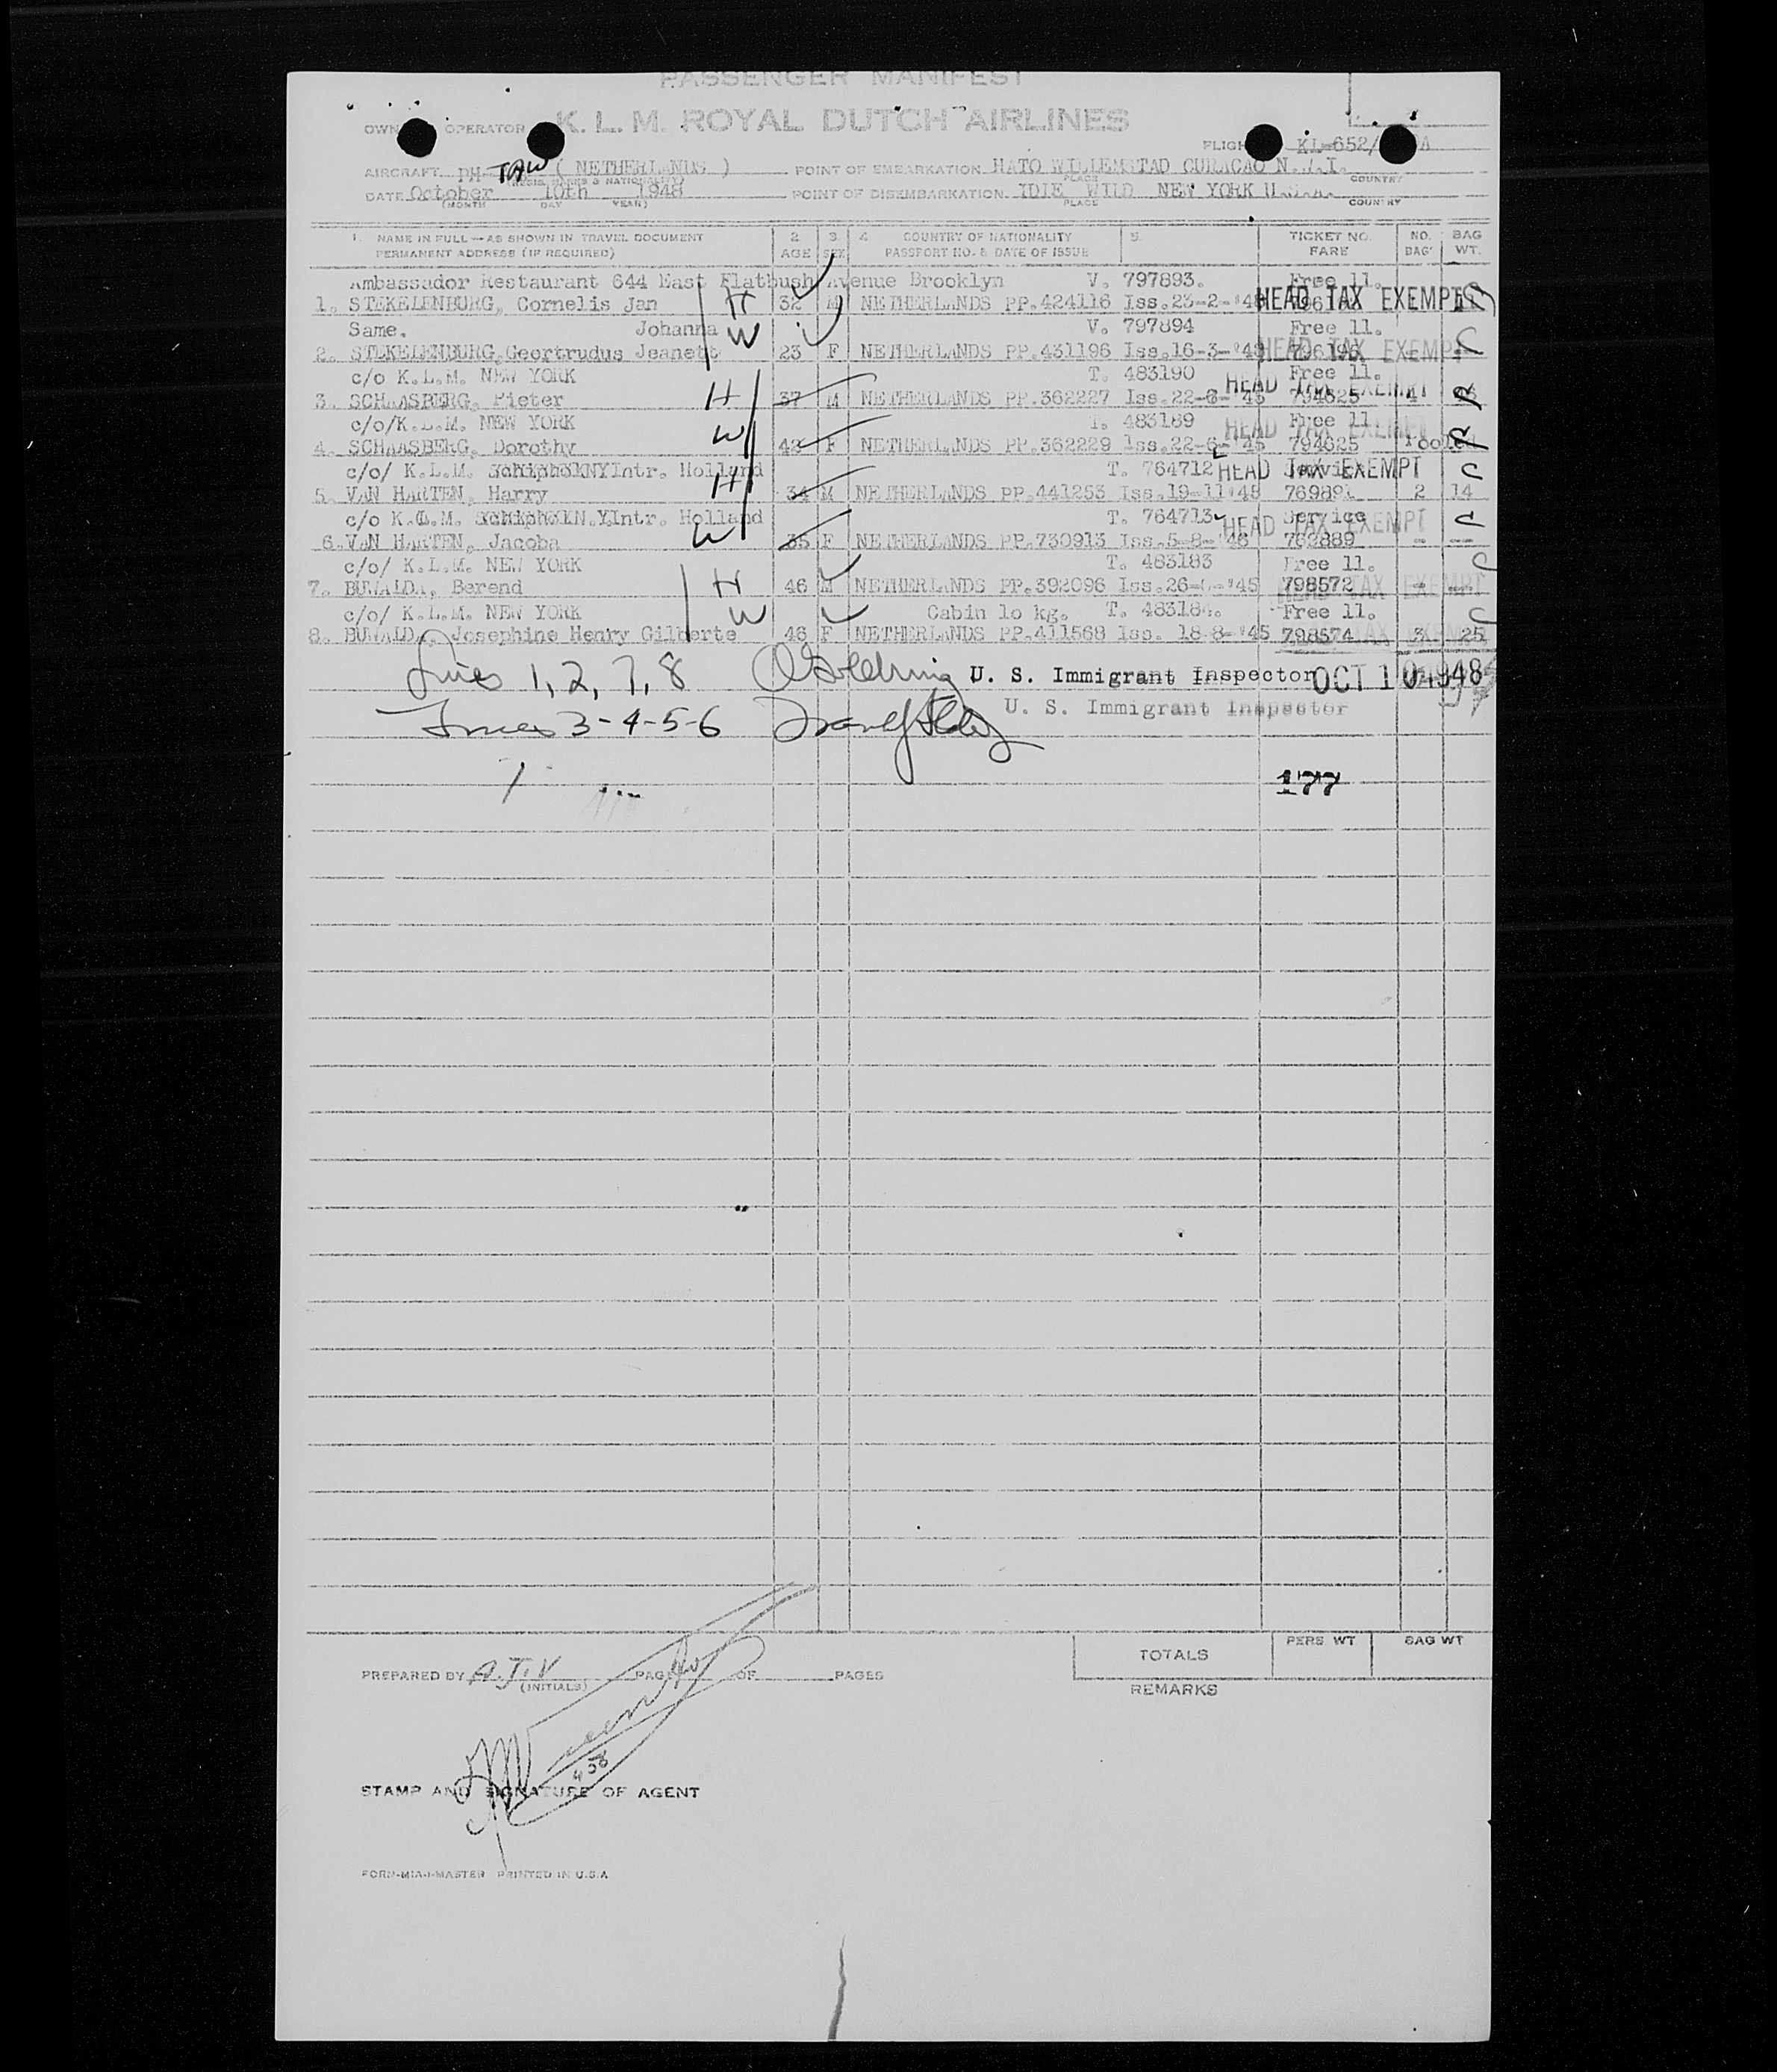 PASSENGER MANIFEST
OPERATOR K. L. M. ROYAL DUTCH AIRLINES
KL-652/
AIRCRAFT PH-TAW ( NETHERLANDS ) POINT OF EMBARKATION HATO WILLEMSTAD CURACAO
PLACE COUNTRY
DATE October 10th 1948 POINT OF DISEMBARKATION IDLE WILD NEW YORK U.S.A.
(MONTH DAY YEAR) PLACE COUNTRY
1. NAME IN FULL—AS SHOWN IN TRAVEL DOCUMENT 2. 3. 4. COUNTRY OF NATIONALITY 5. TICKET NO. NO. BAG
PERMANENT ADDRESS (IF REQUIRED) AGE SEX PASSPORT NO. & DATE OF ISSUE FARE BAG WT.
Ambassador Restaurant 644 East Flatbush Avenue Brooklyn V. 797893. Free 11.
1. STEKELENBURG, Cornelis Jan H 32 M NETHERLANDS PP.424116 Iss.23-2-'48 HEAD TAX EXEMPT
Same. Johanna W V. 797894 Free 11.
2. STEKELENBURG, Geortrudus Jeanett 23 F NETHERLANDS PP.431196 Iss.16-3-'48 HEAD TAX EXEMPT C
c/o K.L.M. NEW YORK T. 483190 Free 11.
3. SCHAASBERG, Pieter H 37 M NETHERLANDS PP.362227 Iss.22-6-'45 794625 HEAD TAX EXEMPT R
c/o/K.L.M. NEW YORK T. 483189 Free 11
4. SCHAASBERG, Dorothy W 42 F NETHERLANDS PP.362229 Iss.22-6-'45 794625 HEAD TAX EXEMPT R
c/o/ K.L.M. Intr. Holland T. 764712 HEAD TAX EXEMPT C
5. VAN HARTEN, Harry H 34 M NETHERLANDS PP.441253 Iss.19-11'48 2 14
c/o K.L.M. Intr. Holland T. 764713 Service HEAD TAX EXEMPT C
6. VAN HARTEN, Jacoba W 35 F NETHERLANDS PP.730913 Iss.5-8-'46 762889 - -
c/o/ K.L.M. NEW YORK T. 483183 Free 11. C
7. BUWALDA, Berend H 46 M NETHERLANDS PP.392096 798572 HEAD TAX EXEMPT
c/o/ K.L.M. NEW YORK W Cabin 10 kg. T. 483184. Free 11. C
8. BUWALDA, Josephine Henry Gilberte 46 F NETHERLANDS PP.411568 Iss. 18-8-'45 798574 3 25
Lines 1, 2, 7, 8 U. S. Immigrant Inspector OCT 10 1948
Lines 3-4-5-6 U. S. Immigrant Inspector
177
TOTALS PERS WT BAG WT
PREPARED BY A.J.V PAGE OF PAGES
(INITIALS)
REMARKS
458
STAMP AND SIGNATURE OF AGENT
FORM-MIA-1-MASTER PRINTED IN U.S.A